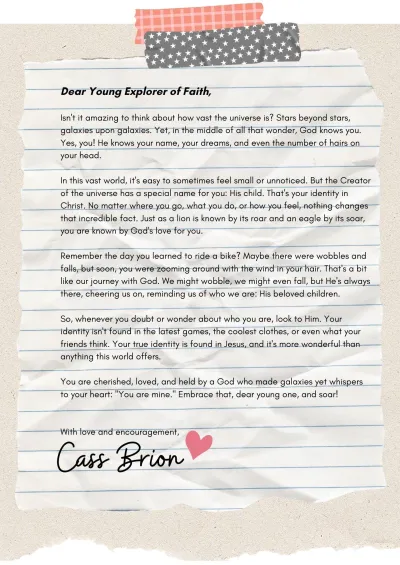 Dear Young Explorer of Faith,
Isn't it amazing to think about how vast the universe is? Stars beyond stars,
galaxies upon galaxies. Yet, in the middle of all that wonder, God knows you.
Yes, you! He knows your name, your dreams, and even the number of hairs on
your head.
In this vast world, it's easy to sometimes feel small or unnoticed. But the Creator
of the universe has a special name for you: His child. That's your identity in
Christ. No matter where you go, what you do, or how you feel, nothing changes
that incredible fact. Just as a lion is known by its roar and an eagle by its soar,
you are known by God's love for you.
Remember the day you learned to ride a bike? Maybe there were wobbles and
falls, but soon, you were zooming around with the wind in your hair. That's a bit
like our journey with God. We might wobble, we might even fall, but He's always
there, cheering us on, reminding us of who we are: His beloved children.
So, whenever you doubt or wonder about who you are, look to Him. Your
identity isn't found in the latest games, the coolest clothes, or even what your
friends think. Your true identity is found in Jesus, and it's more wonderful than
anything this world offers.
You are cherished, loved, and held by a God who made galaxies yet whispers
to your heart: "You are mine." Embrace that, dear young one, and soar!
With love and encouragement,
Cass Brion